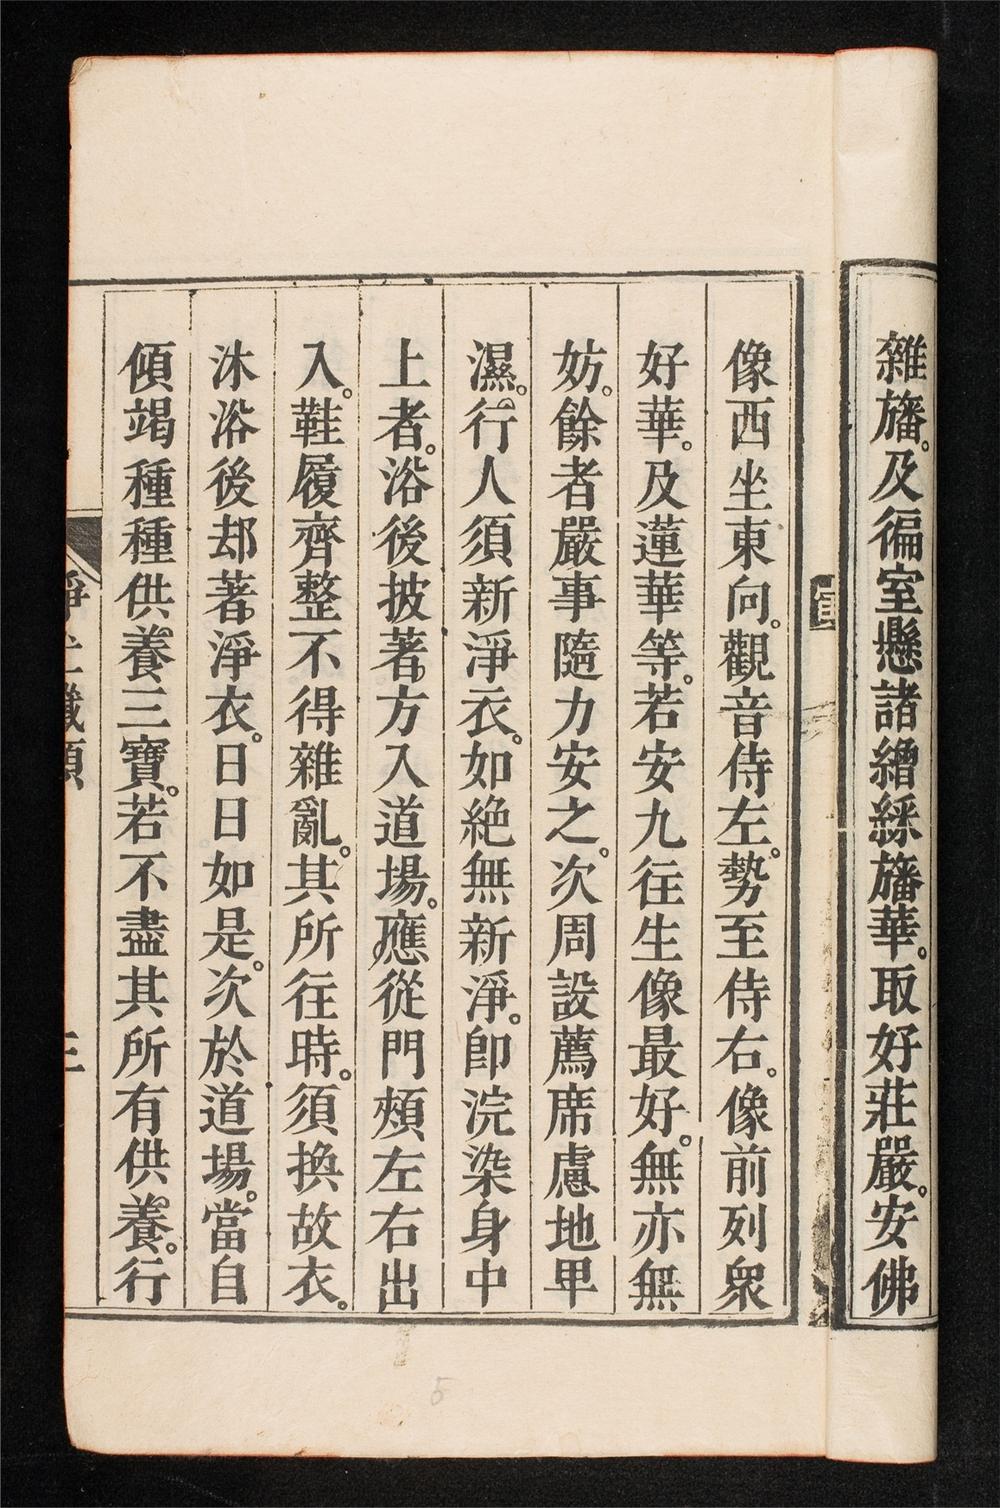 雜旛。及徧室懸諸繒綵旛華。取好莊嚴。安佛
像西坐東向。觀音侍左。勢至侍右。像前列眾
好華。及蓮華等。若安九往生像最好。無亦無
妨。餘者嚴事隨力安之。次周設薦席慮地卑
濕。行人須新淨衣。如絶無新淨。卽浣染身中
上者。浴後披著。方入道場。應從門頰左右出
入。鞋履齊整不得雜亂。其所往時。須換故衣。
沐浴後却著淨衣。日日如是。次於道場。當自
傾竭種種供養三寶。若不盡其所有供養。行
淨土懺願
三
5